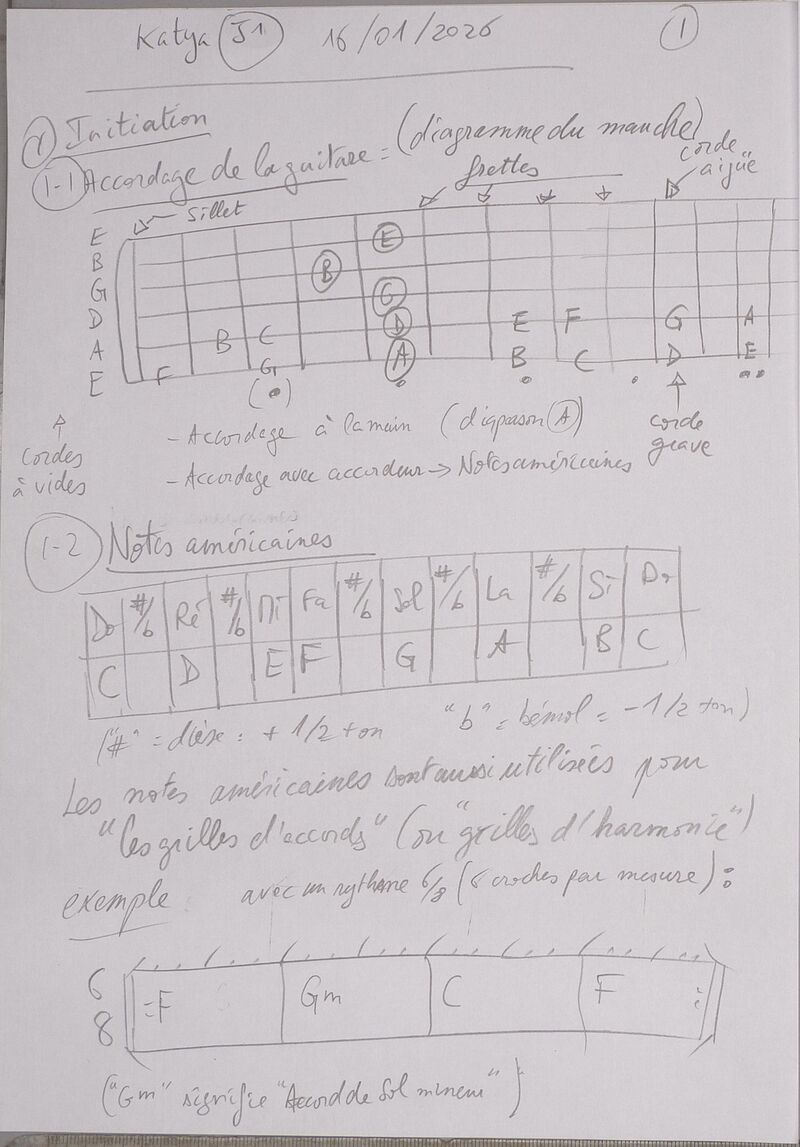 Katya J1 16/01/2026 1
1) Initiation
1-1 Accordage de la guitare = (diagramme du manche)
Sillet frettes corde aigüe
E E
B B
G G
D D E F G A
A B C
E F G A B C D E
(•) • • • ••
cordes à vides
- Accordage à la main (diapason A)
corde grave
- Accordage avec accordeur → Notes américaines
1-2 Notes américaines
Do #/b Ré #/b Mi Fa #/b Sol #/b La #/b Si Do
C D E F G A B C
("#" = dièse = + 1/2 ton "b" = bémol = - 1/2 ton)
Les notes américaines sont aussi utilisées pour
"les grilles d'accords" (ou "grilles d'harmonie")
exemple : avec un rythme 6/8 (6 croches par mesure) :
6
8
:F Gm C F :
("Gm" signifie "Accord de Sol mineur")